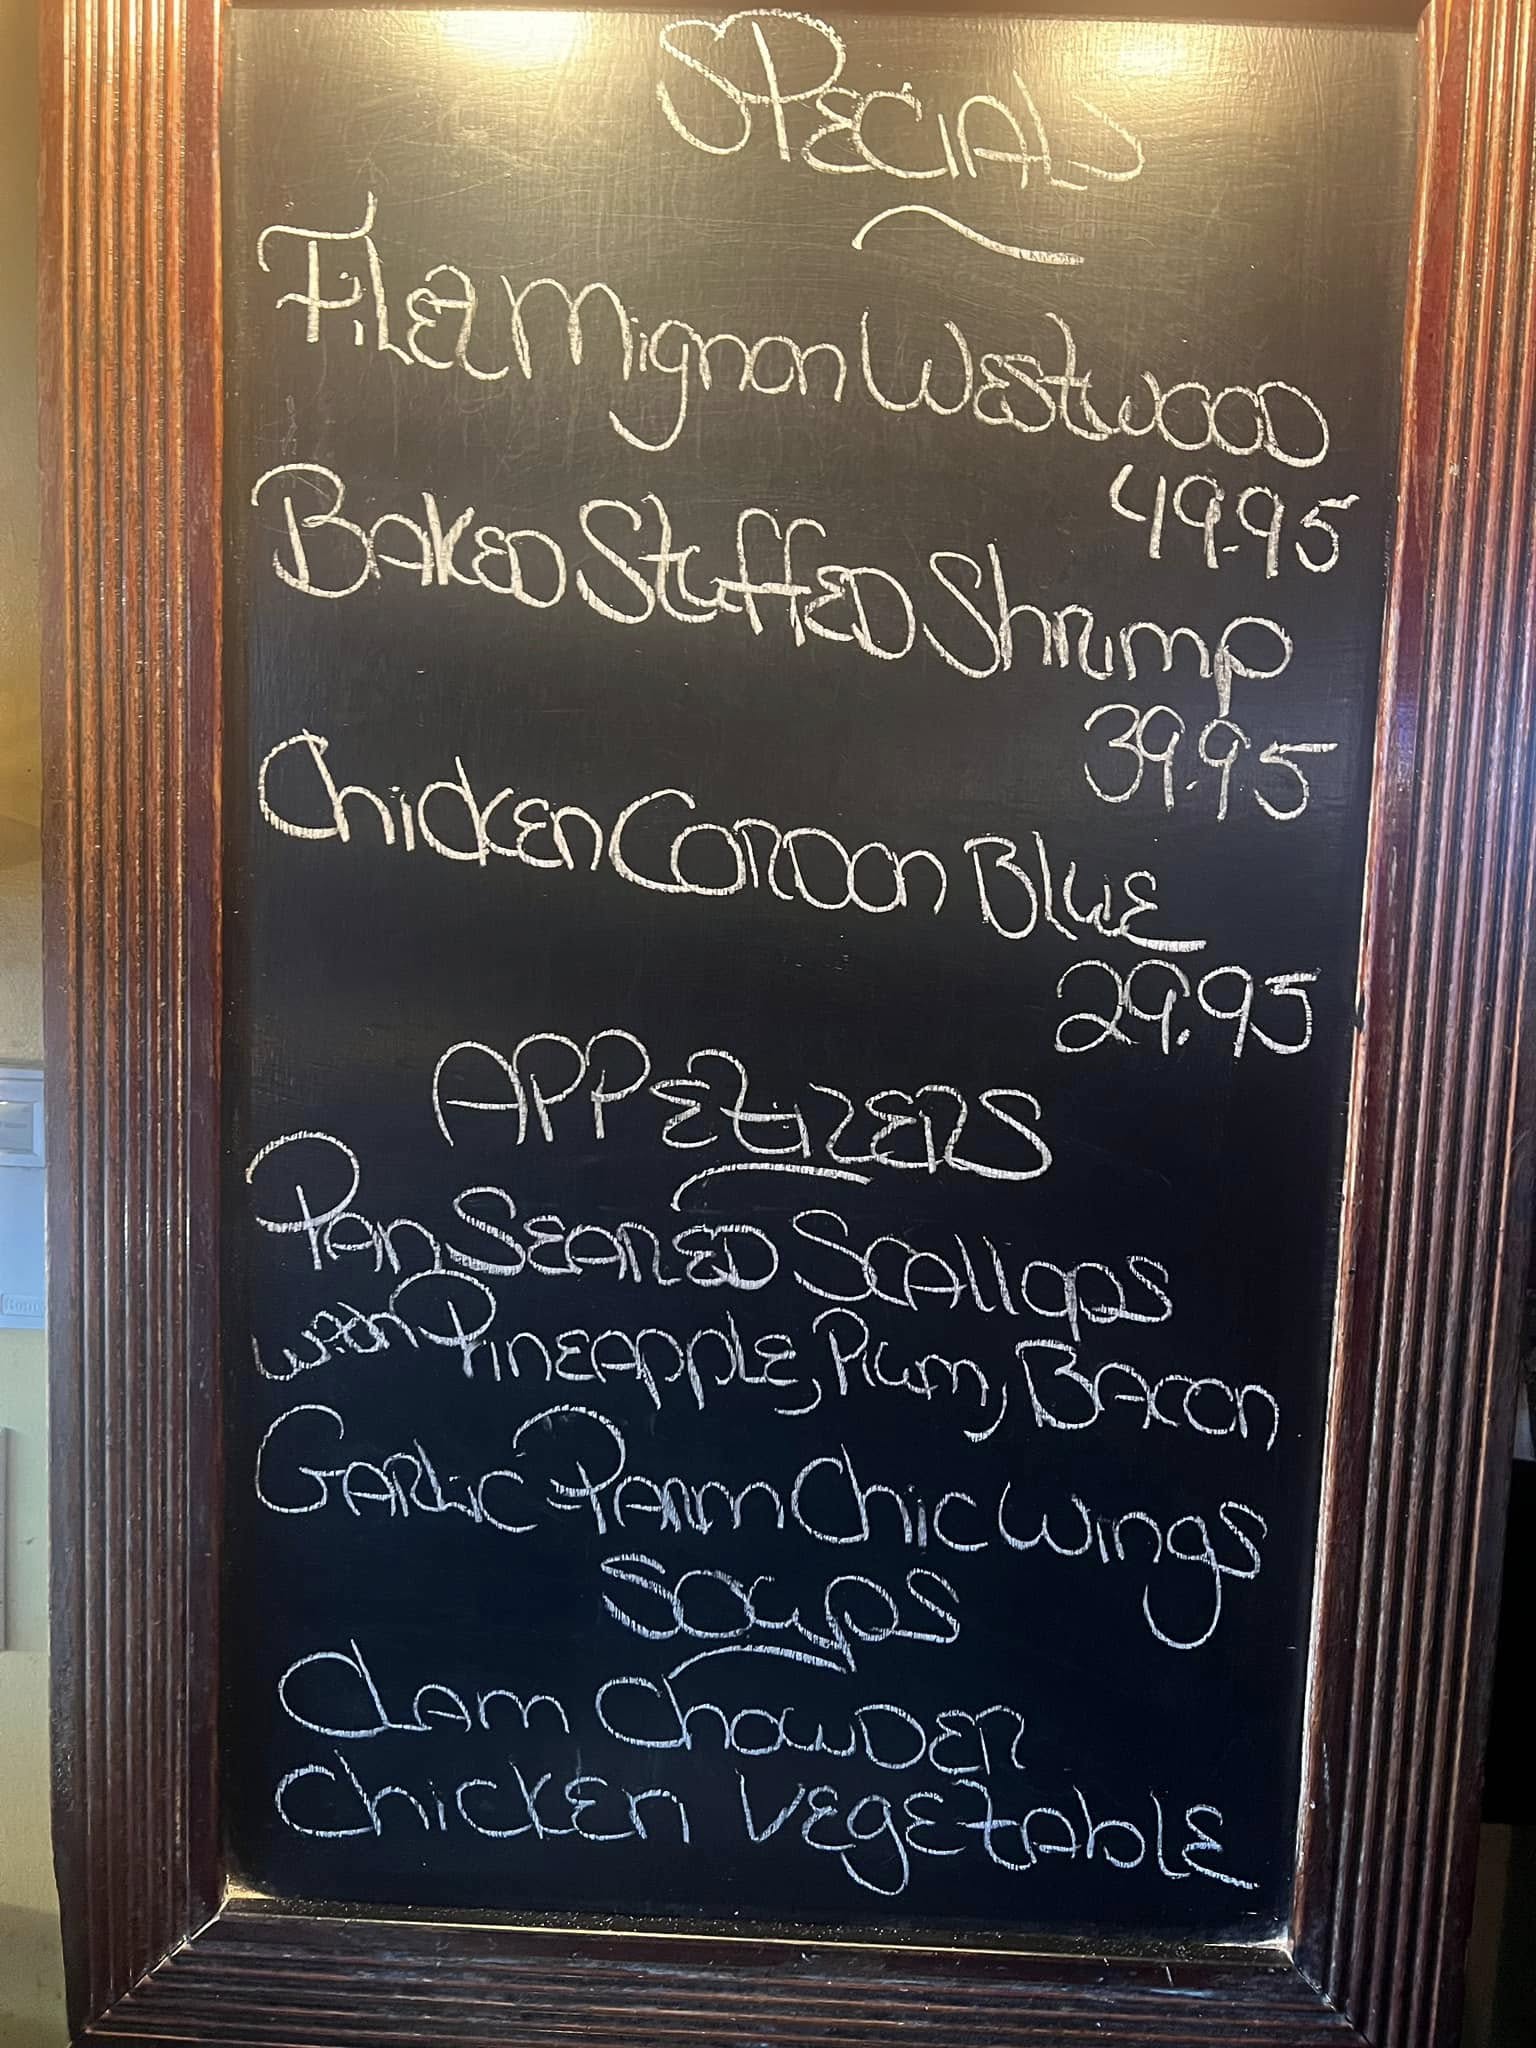 SPECIALS
Filet Mignon Westwood
49.95
Baked Stuffed Shrimp
39.95
Chicken Cordon Blue
29.95
APPETIZERS
Pan Seared Scallops
with Pineapple, Rum, Bacon
Garlic-Parm Chic Wings
SOUPS
Clam Chowder
Chicken Vegetable